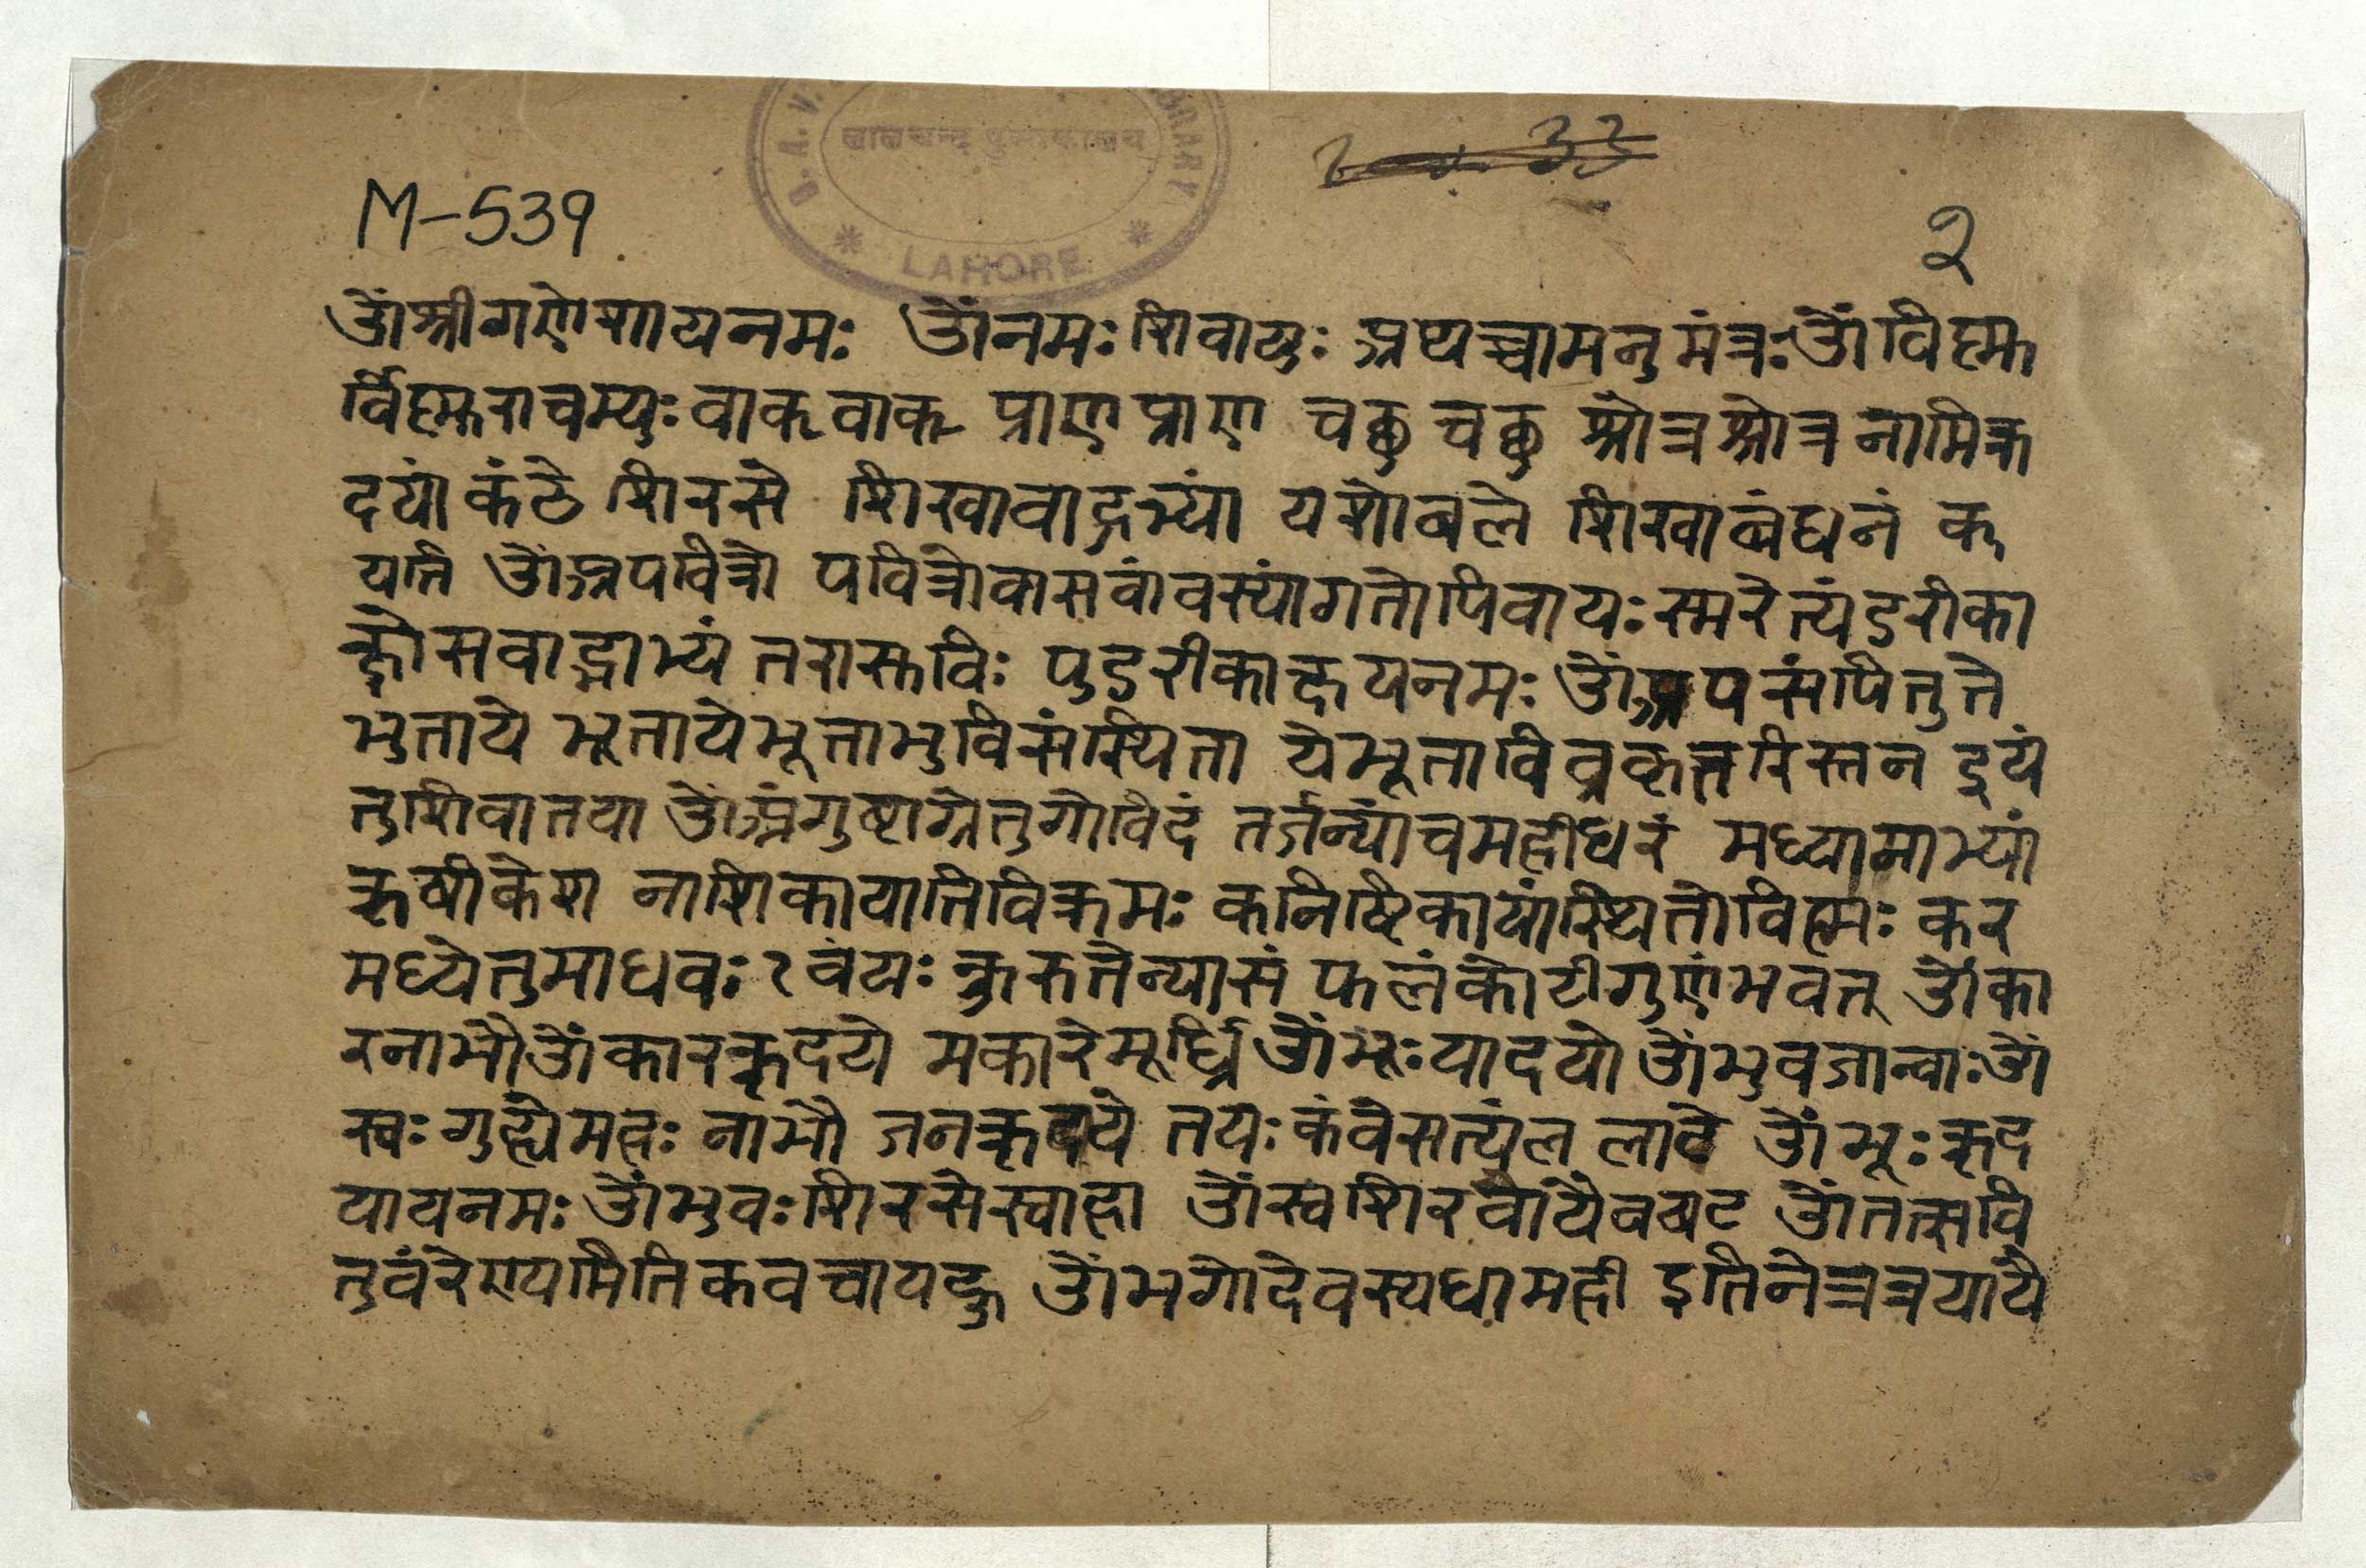 D. A. V. LIBRARY
लालचन्द पुस्तकालय
LAHORE
M-539
२
ओंश्रीगणेशायनमः ओंनमःशिवायः अथचामनुमंत्रःओंविह्म
र्विह्मराचम्युः वाकवाक प्राणप्राण चछु चछु श्रोत्रश्रोत्र नाभिह्र
दयां कंठे शिरसे शिखावाद्गभ्यां यशोबले शिखाबंधनं क
यर्त्ति ओंअपवित्रो पवित्रोवासवांवस्यांगतोपिवायः स्मरेत्यंडरीका
क्षोसवाद्माभ्यं तरास्तविः पुडरीकाक्षयनमः ओंअपसंर्पितुते
भुताये भूतायेभूताभुविसंस्थिता येभूताविव्रकृत्तरिस्तन इयं
तुशिवातया ओंअंगुष्टाग्रेतुगोविदं तर्जन्यांचमहीधरं मध्यामाभ्यां
ऋषीकेश नाशिकायात्तिविक्रमः कनिष्टिकायांस्थितोविह्मः कर
मध्येतुमाधवः २वंयः कुरुतेन्यासं फलंकोटीगुणंभवत् ओंका
रनाभौओंकारहृदये मकारेमूर्ध्नि ओंभूःपादयो ओंभुवजान्वाःओं
स्वः गुह्येमहः नाभौ जनहृदये तयः कंवेसत्यंल लाटे ओंभूःहृद
यायनमः ओंभुवःशिरसेस्वाहा ओंस्वशिरवायैवषट ओंतत्सवि
तुर्वरेण्यमितिकवचायहु ओंभगोदेवस्यधामही इतिनेत्रत्रयायै